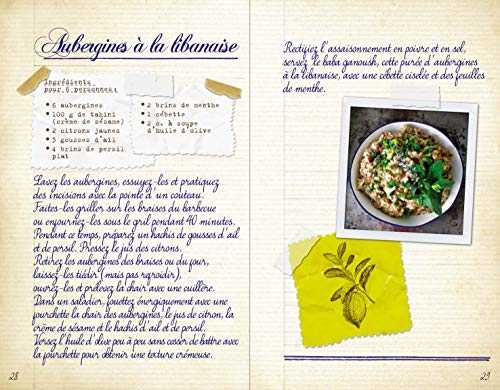 Aubergines à la libanaise
Ingrédients
pour 6 personnes
• 6 aubergines
• 100 g de tahini
(crème de sésame)
• 2 citrons jaunes
• 5 gousses d'ail
• 4 brins de persil
plat
• 2 brins de menthe
• 1 cébette
• 2 c. à soupe
d'huile d'olive
Lavez les aubergines, essuyez-les et pratiquez
des incisions avec la pointe d'un couteau.
Faites-les griller sur les braises du barbecue
ou enfournez-les sous le gril pendant 40 minutes.
Pendant ce temps, préparez un hachis de gousses d'ail
et de persil. Pressez le jus des citrons.
Retirez les aubergines des braises ou du four,
laissez-les tiédir (mais pas refroidir),
ouvrez-les et prélevez la chair avec une cuillère.
Dans un saladier, fouettez énergiquement avec une
fourchette la chair des aubergines, le jus de citron, la
crème de sésame et le hachis d'ail et de persil.
Versez l'huile d'olive peu à peu sans cesser de battre avec
la fourchette pour obtenir une texture crémeuse.
28
Rectifiez l'assaisonnement en poivre et en sel,
servez le baba ganoush, cette purée d'aubergines
à la libanaise, avec une cébette ciselée et des feuilles
de menthe.
29